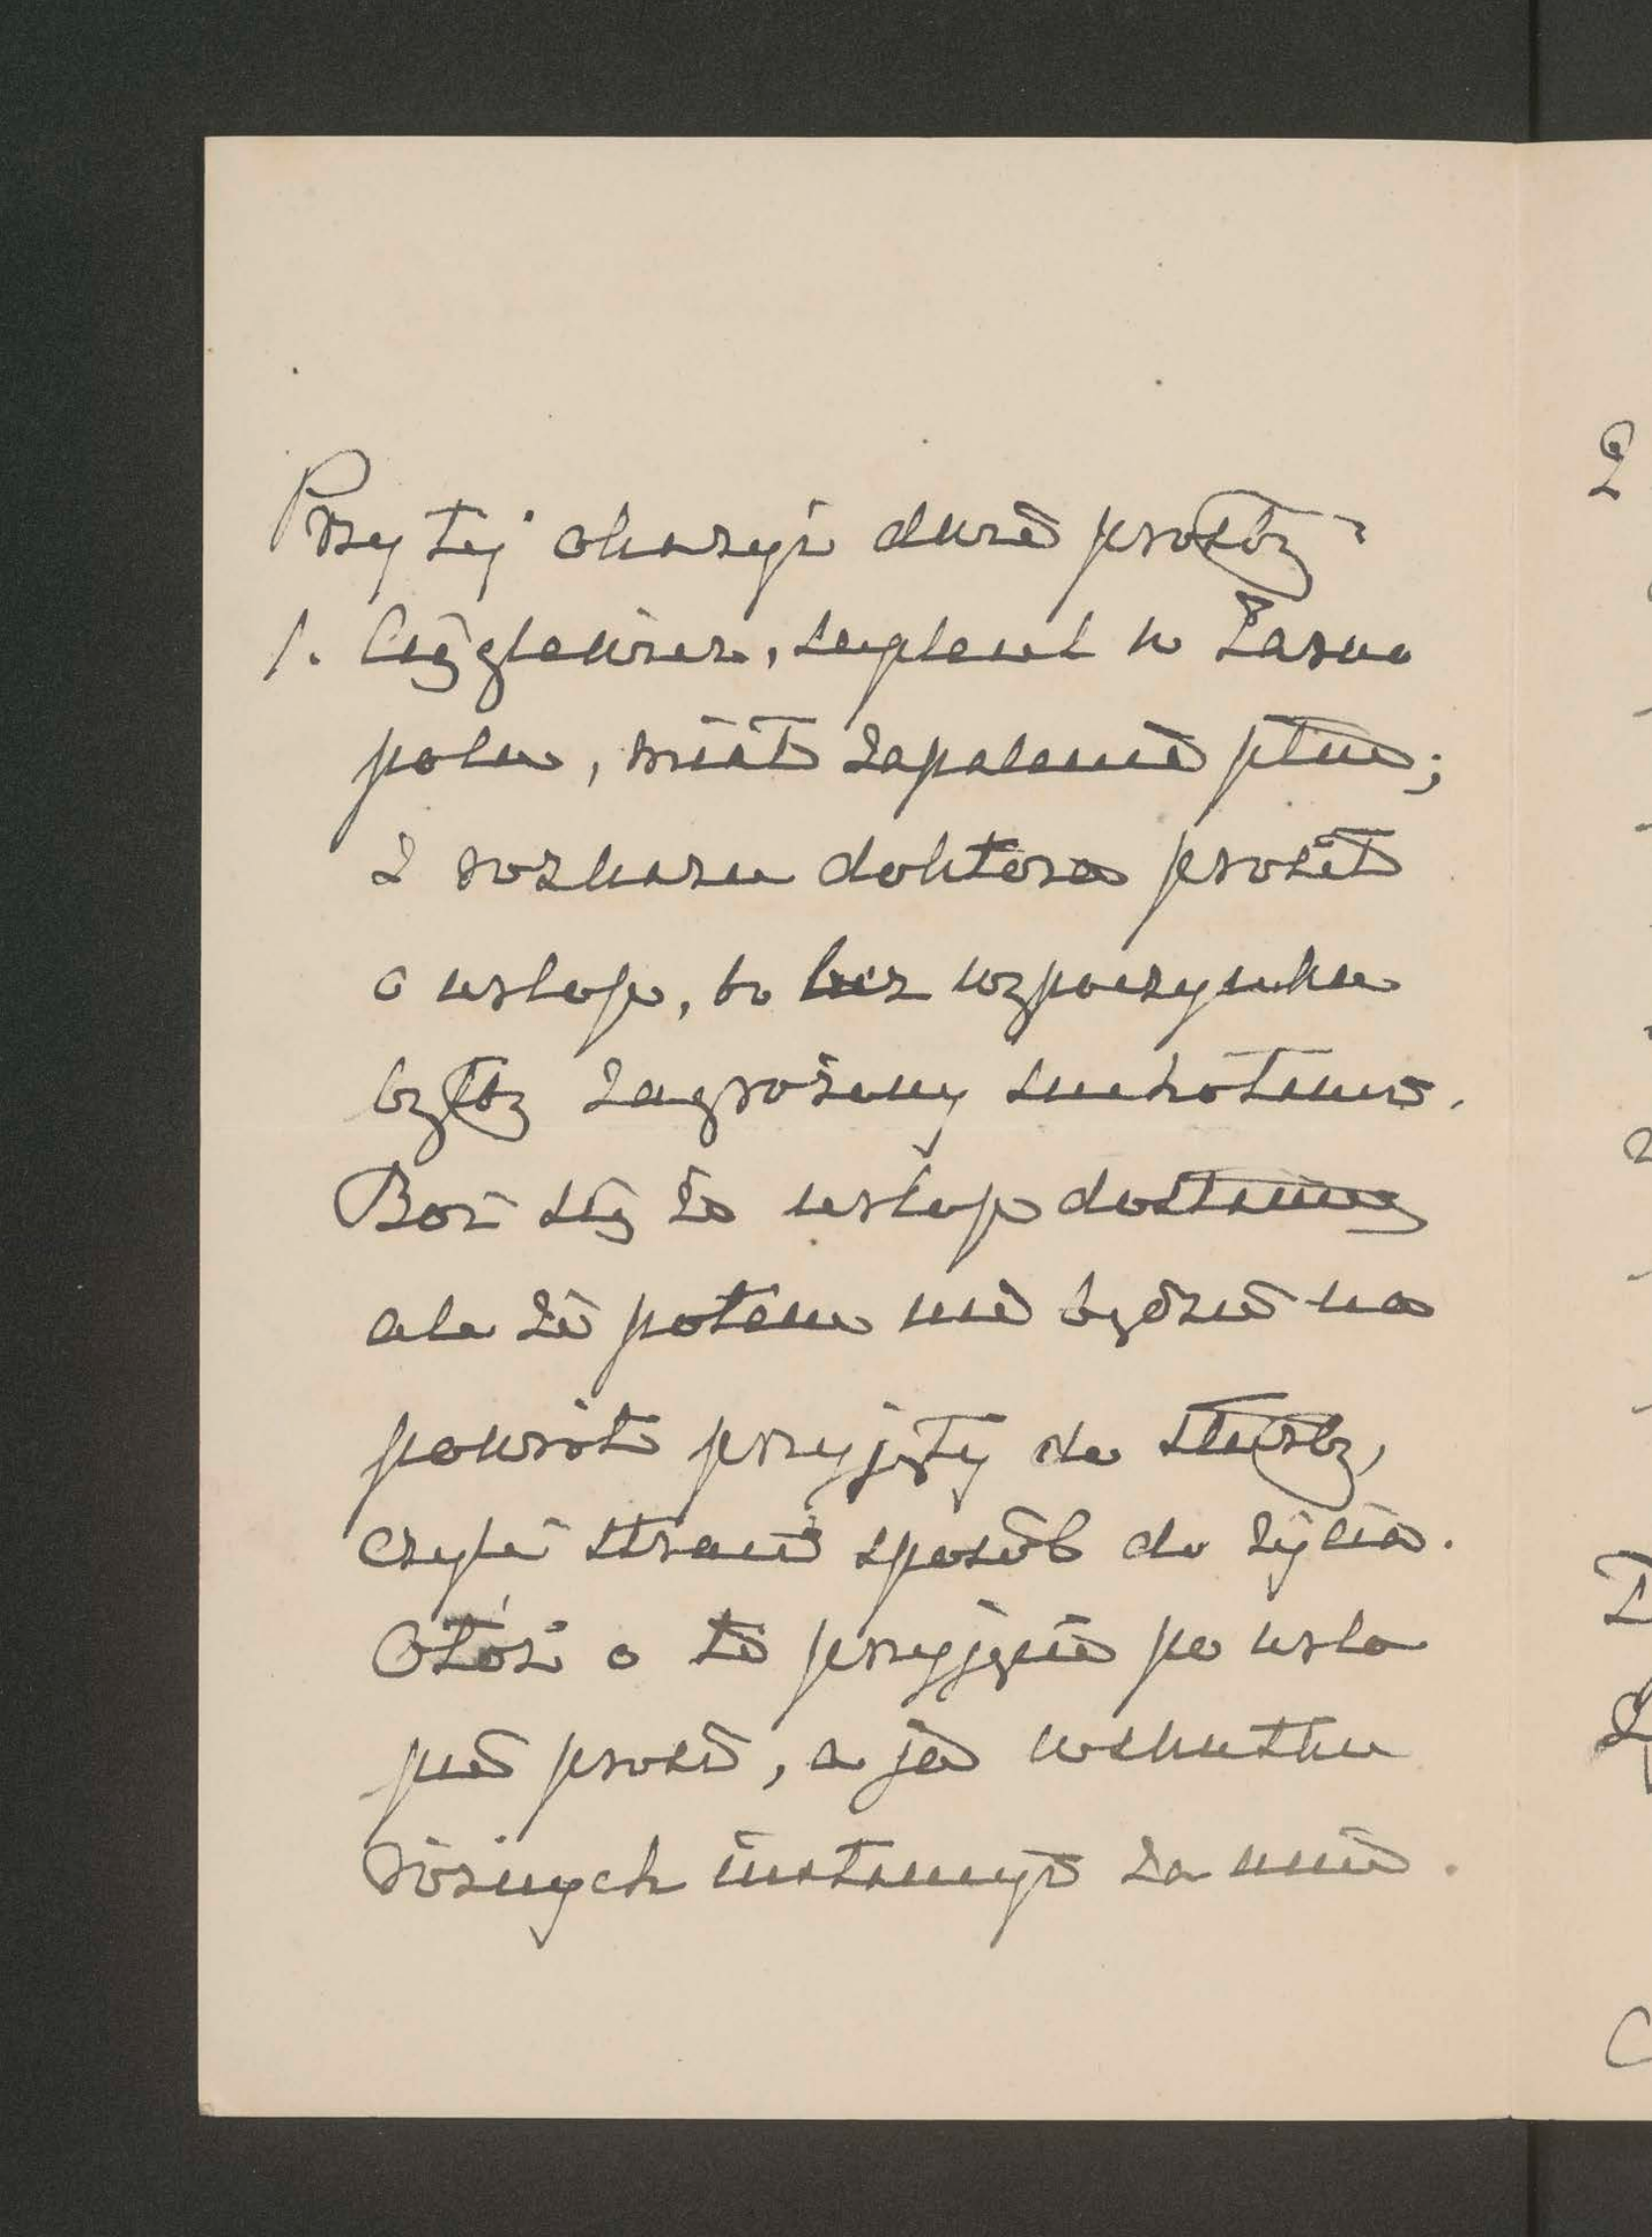 Przy tej okazyi dwie prośby:
1. Cięglewicz, suplent w Tarno
polu, miał zapalenie płuc;
z rozkazu doktora prosił
o urlop, bo bez wypoczynku
byłby zagrożony suchotami.
Boi się że urlop dostanie
ale że potem nie będzie na
powrót przyjęty do służby,
czyli straci sposób do życia.
Otóż o to przyjęcie po urlo
pie prosi, a ja wskutku
różnych instancyi za nim.